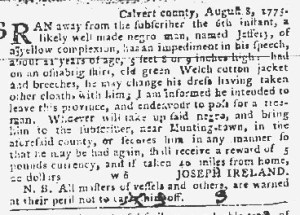 Calvert county, August 8, 1775.
RAN away from the subscriber the 6th instant, a
likely well made negro man, named Jeffery, of
a yellow complexion, has an impediment in his speech,
about 21 years of age, 5 feet 8 or 9 inches high: had
on an osnabrig shirt, old green Welch cotton jacket
and breeches, he may change his dress having taken
other cloath, with him; I am informed he intended to
leave this province, and endeavour to pass for a free-
man. Whoever will take up said negro, and bring
him to the subscriber, near Hunting-town, in the
aforesaid county, or secures him in any manner so
that he may be had again, shall receive a reward of 5
pounds currency, and if taken 40 miles from home,
20 dollars w6 JOSEPH IRELAND.
N. B. All masters of vessels and others, are warned
at their peril not to carry him off.